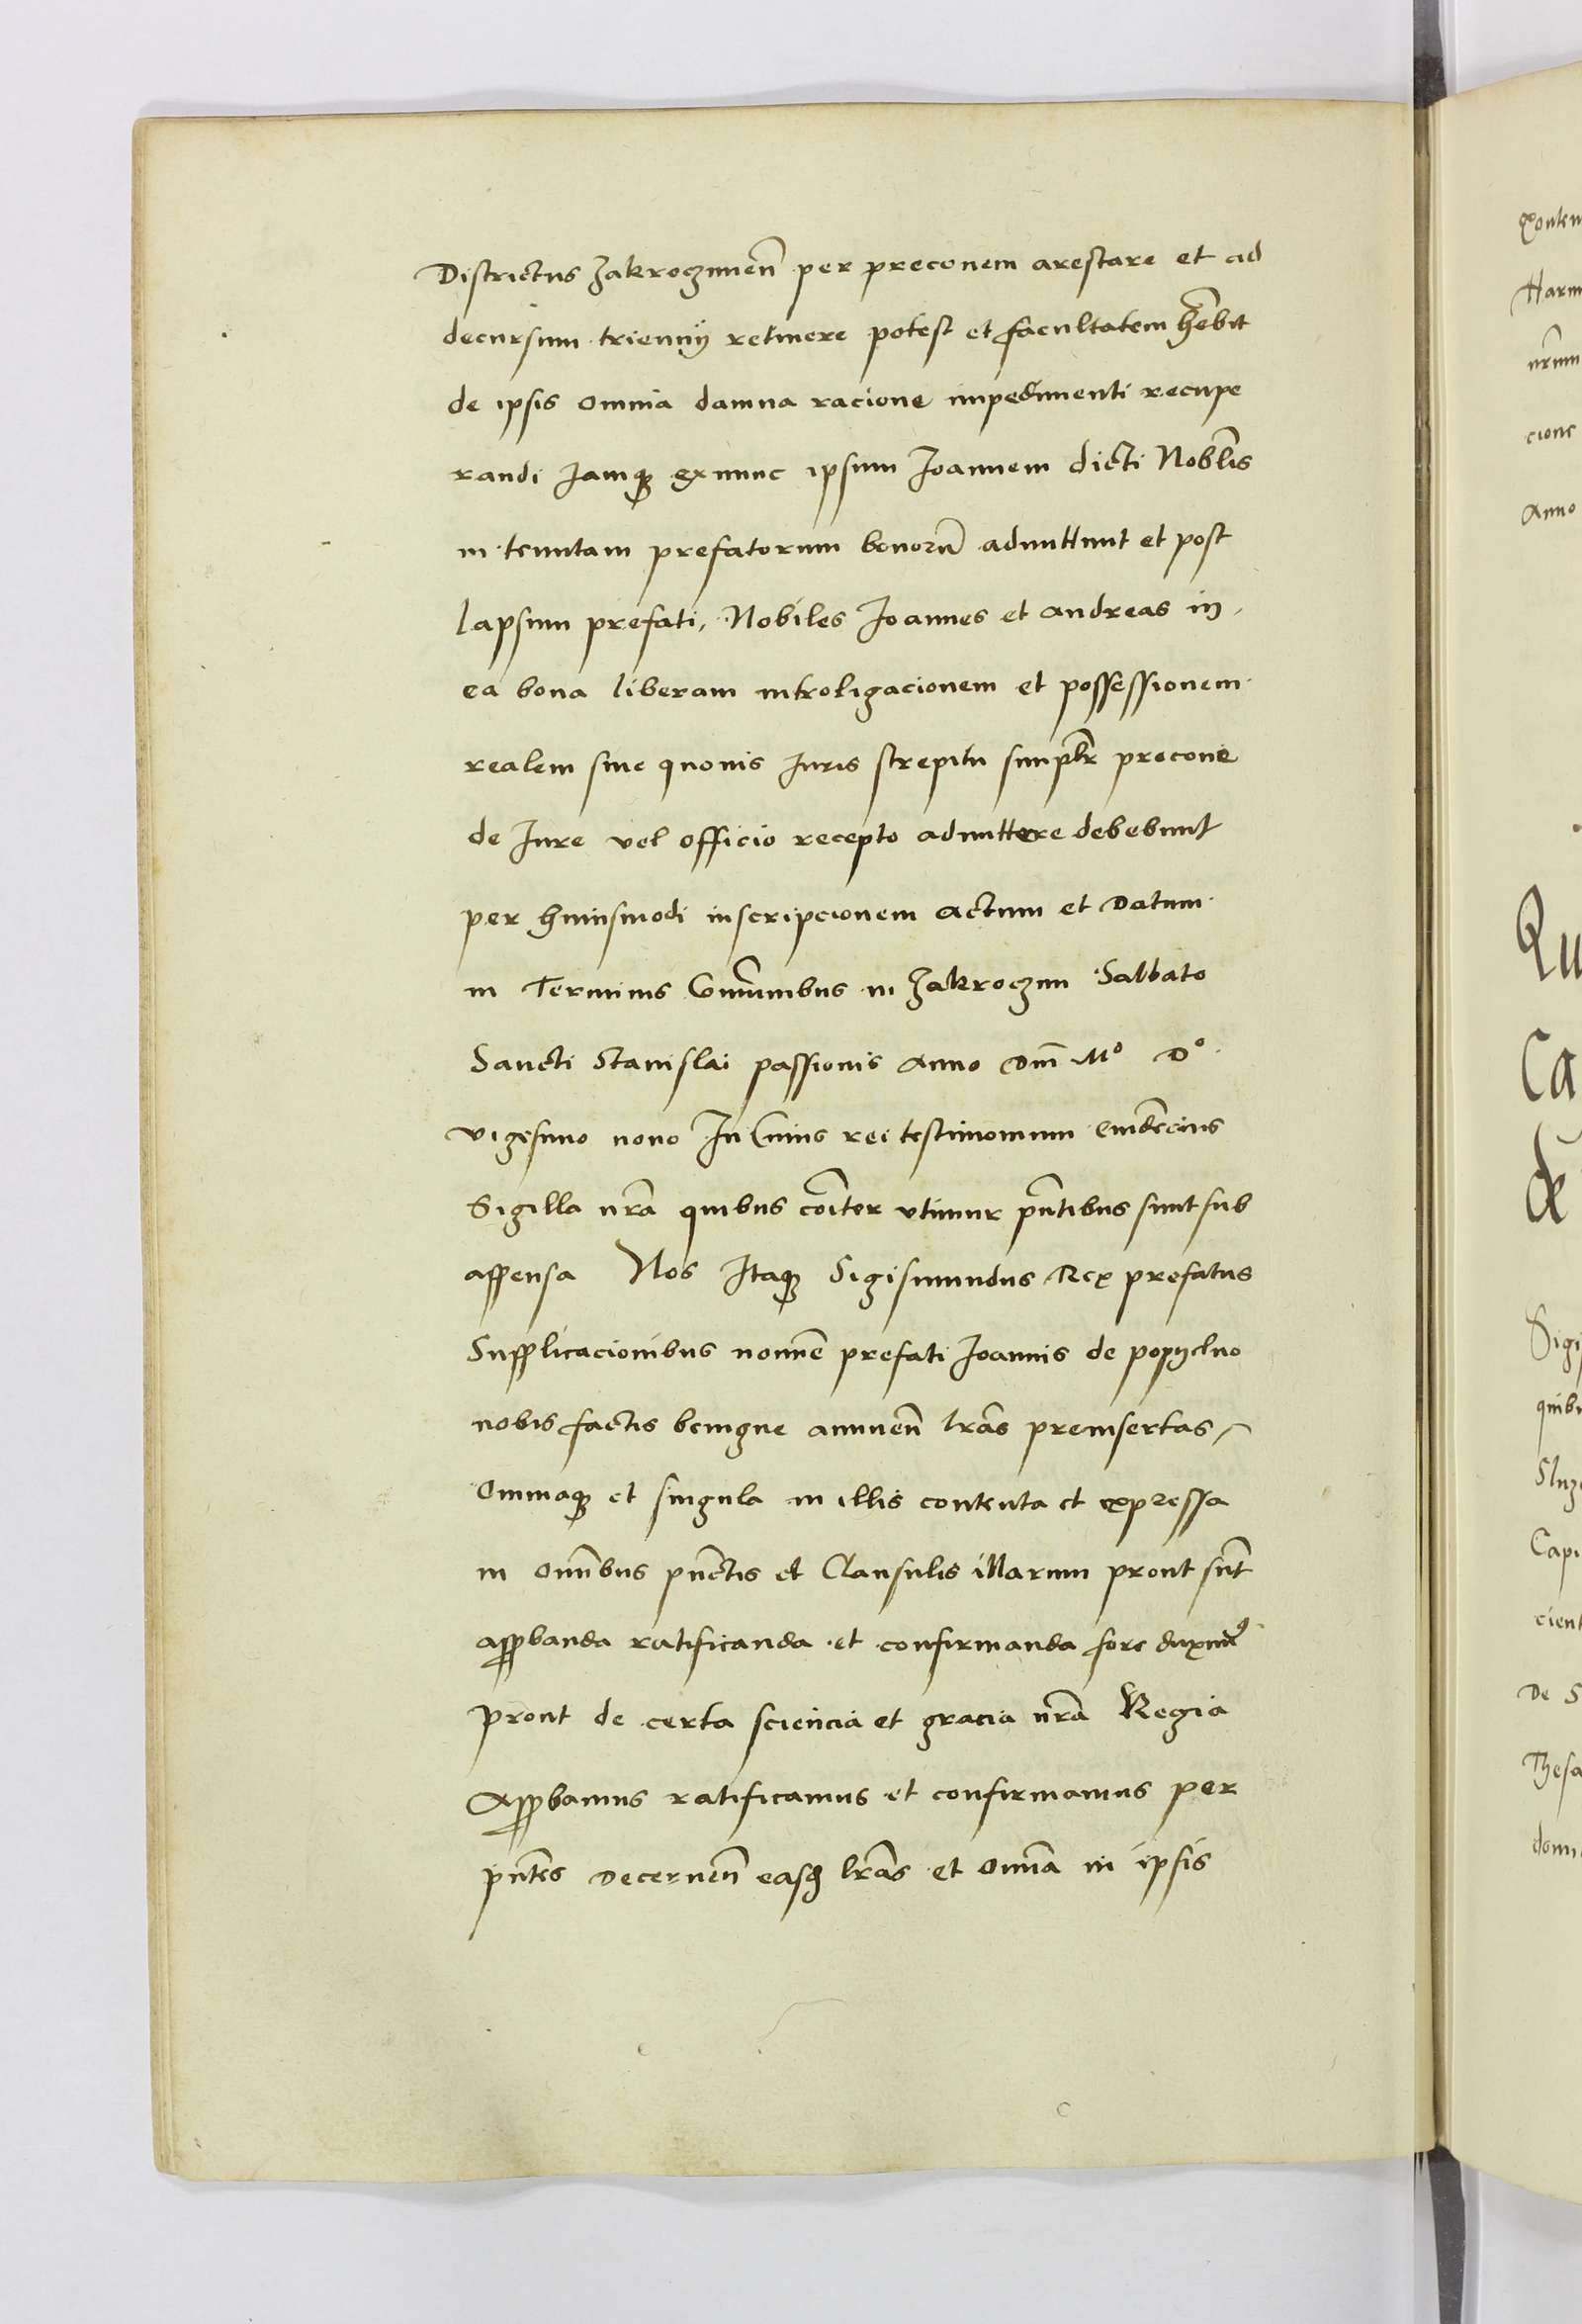 Districtus Zakroczimen̄ per preconem arestare et ad
decursum triennij retinere potest et facultatem hēbit
de ipsis omnia damna racione impedimenti recupe
randi Iamq̨ ex nunc ipsum Joannem dicti Nobl̄es
in tenutam prefatorum bonorū admittunt et post
lapsum prefati, Nobiles Joannes et Andreas in
ea bona liberam intoligacionem et possessionem
realem sine quouis Iuris strepitu simpl̄r precone
de Iure vel officio recepto admittere debebunt
per huiusmodi inscripcionem Actum et Datum
in Terminis Com̄unibus in Zakroczim Sabbato
Sancti Stanislai passionis Anno Dn̄i Mº Dº
vigesimo nono In Cuius rei testimonium euidēcius
Sigilla nr̄a quibus cōiter vtimur pn̄tibus sunt sub
appensa Nos Itaq̨ Sigismundus Rex prefatus
Supplicacionibus nomīe prefati Joannis de popyelno
nobis factis benigne annuen̄ lr̄as preinsertas
Omniaq̨ et singula in illis contenta et expressa
in om̄ibus pūctis et Clausulis illarum prout sūt
approbanda ratificanda et confirmanda fore duximꝰ
prout de certa sciencia et gracia nr̄a Regia
Approbamus ratificamus et confirmamus per
pn̄tes Decernen̄ easq̨ lr̄as et om̄ia in ipsis
Harm
cione
Anno
Qu
Ca
de
Sigi
quibu
Capi
cient
De S
Thesa